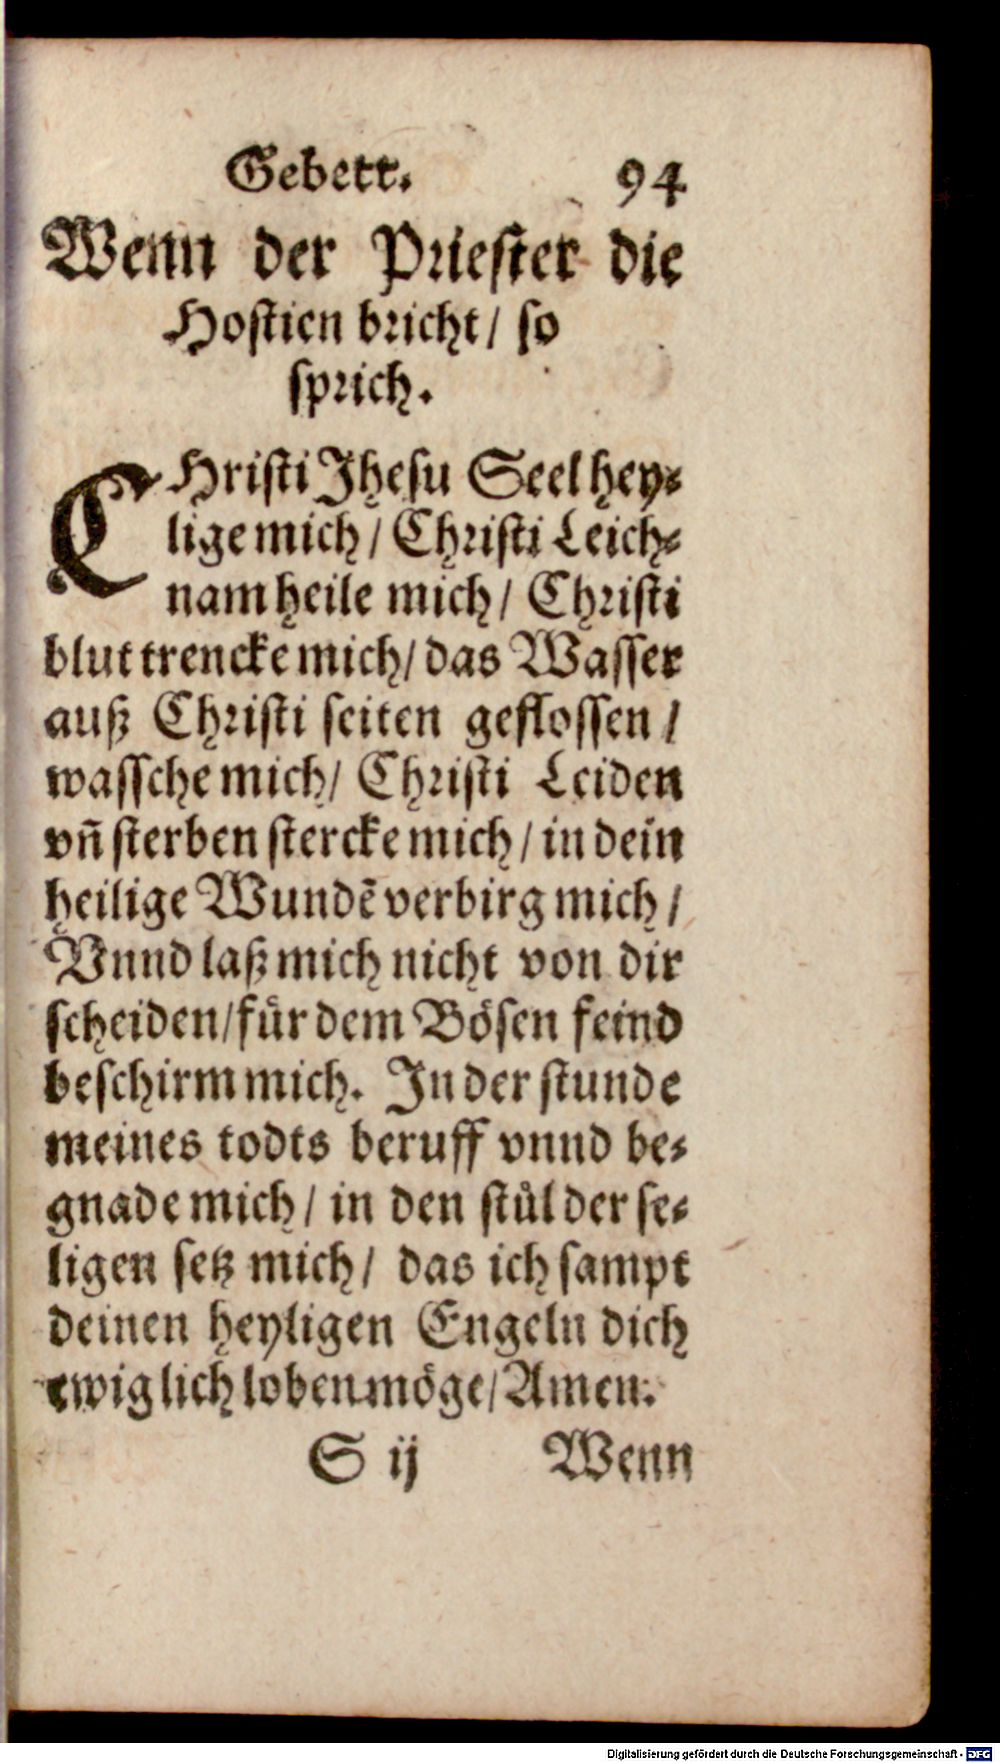 Gebett. 94
Wenn der Priester die
Hostien bricht/ so
sprich.
CHristi Jhesu Seel hey⸗
lige mich/ Christi Leich⸗
nam heile mich/ Christi
blut trencke mich/ das Wasser
auß Christi seiten geflossen/
wassche mich/ Christi Leiden
vñ sterben stercke mich/ in dein
heilige Wundẽ verbirg mich/
Vnnd laß mich nicht von dir
scheiden/ für dem Bösen feind
beschirm mich. In der stunde
meines todts beruff vnnd be⸗
gnade mich/ in den stůl der se⸗
ligen setz mich/ das ich sampt
deinen heyligen Engeln dich
ewiglich loben möge/ Amen.
S ij Wenn
Digitalisierung gefördert durch die Deutsche Forschungsgemeinschaft - DFG